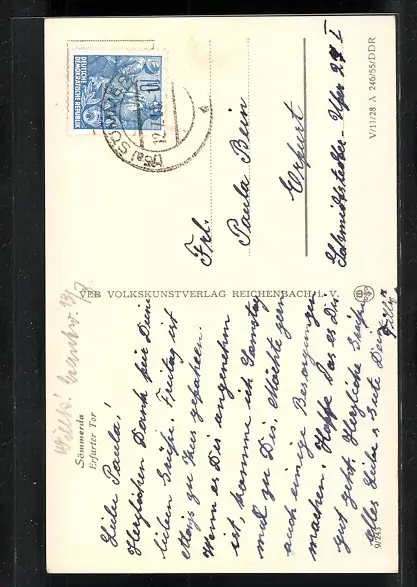 Sömmerda
Erfurter Tor
Liebe Paula!
Herzlichen Dank für Deine
lieben Grüße. Freitag ist
zu gefahren.
Wenn es Dir angenehm
ist, komme ich Samstag
mal zu Dir. Möchte gern
auch einige Besorgungen
machen. Hoffe das es Dir
gut geht. Herzliche Grüße
Alles Liebe u. Gute Deine
9/243
VEB VOLKSKUNSTVERLAG REICHENBACH i. V.
DEUTSCHE
DEMOKRATISCHE REPUBLIK
10
Frl.
Paula Bein
Erfurt
Schmidtstedter-Ufer 27 I
V/11/28 A 246/55/DDR